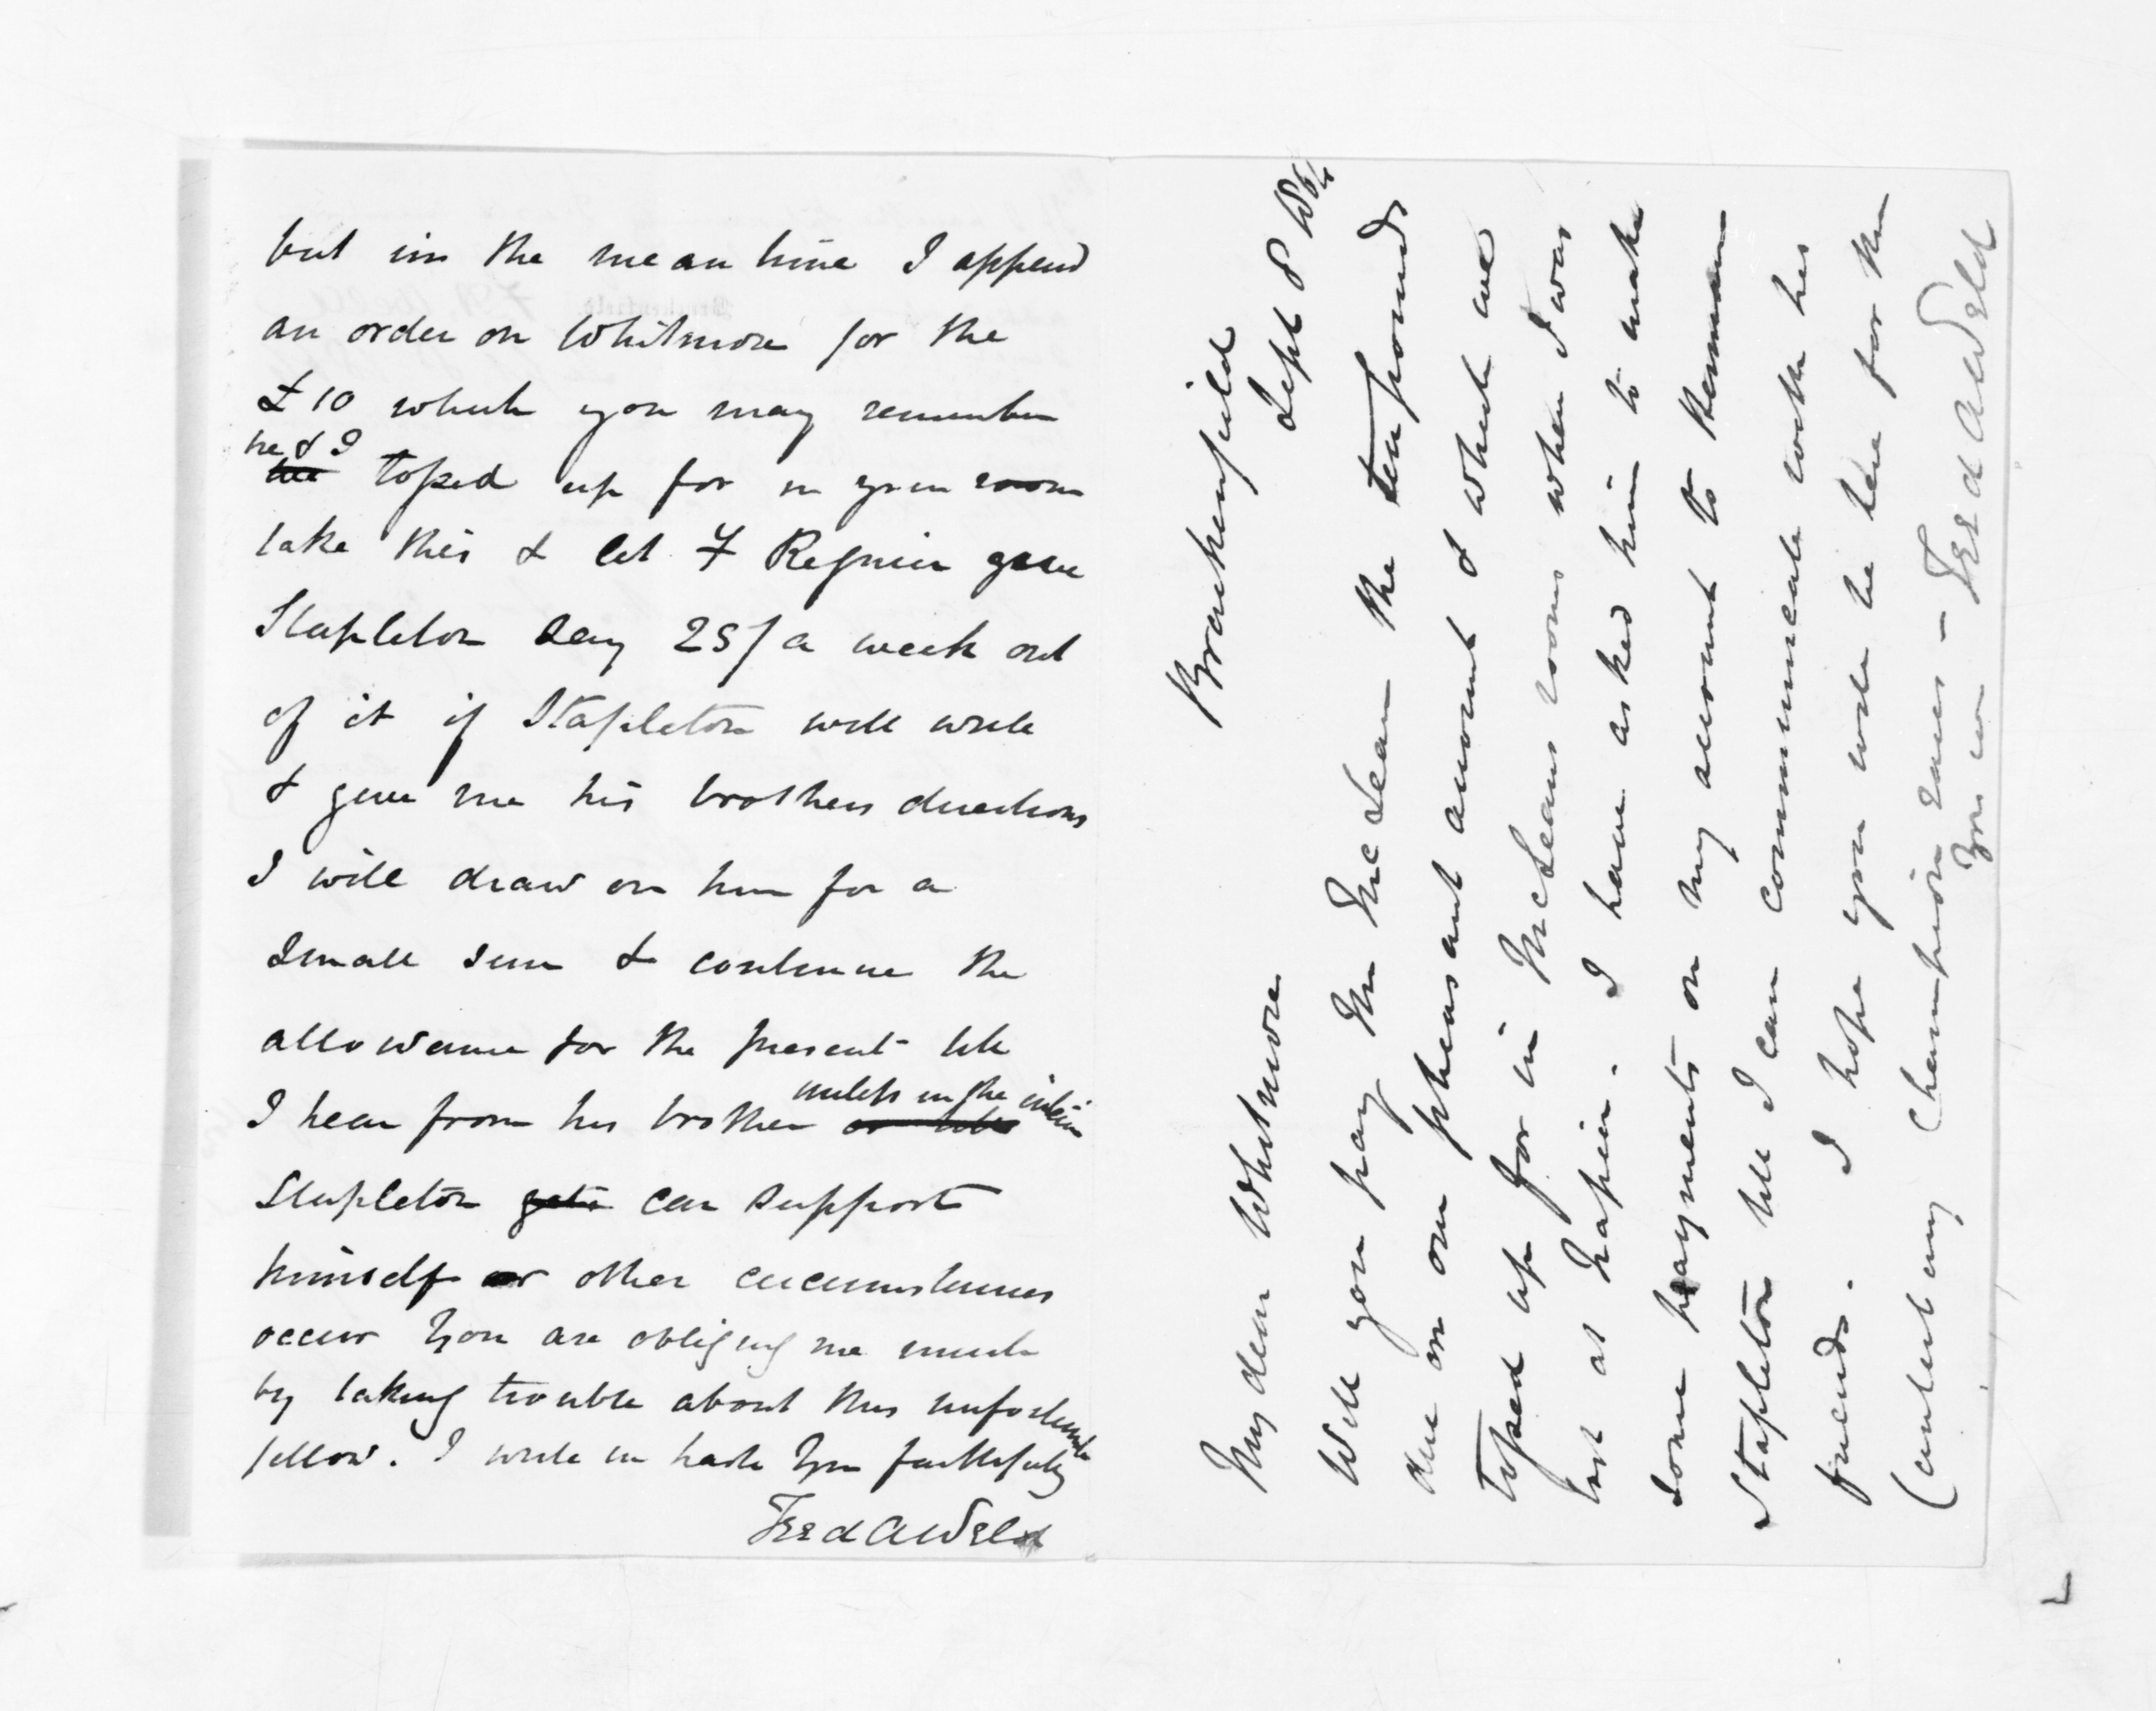 but in the mean time I append
an order on Whitmore for the
£10 which you may remember
he & I
we tossed up for in your room
take this & let F Regnier give
Stapleton say 25/ a week out
of it if Stapleton will write
& give me his brothers directions
I will draw on him for a
small sum & continue the
allowance for the present till
unless in the interim
I hear from his brother or
Stapleton gets can support
himself or other circumstances
occur You are obliging me much
by taking trouble about this unfortunate
fellow. I write in haste Yrs faithfully
Fred A Weld
Brackenfield
Sept 8
My dear Whitmore
Will you pay Mr McLean the ten pounds
due on our pheasant account & which we
tossed up for in McLeans room when I was
last at Napier. I have asked him to make
some payments on my account to
Stapleton till I can communicate with his
friends. I hope you will be here for the
Canterbury Champion races –
Yrs
Fred A Weld